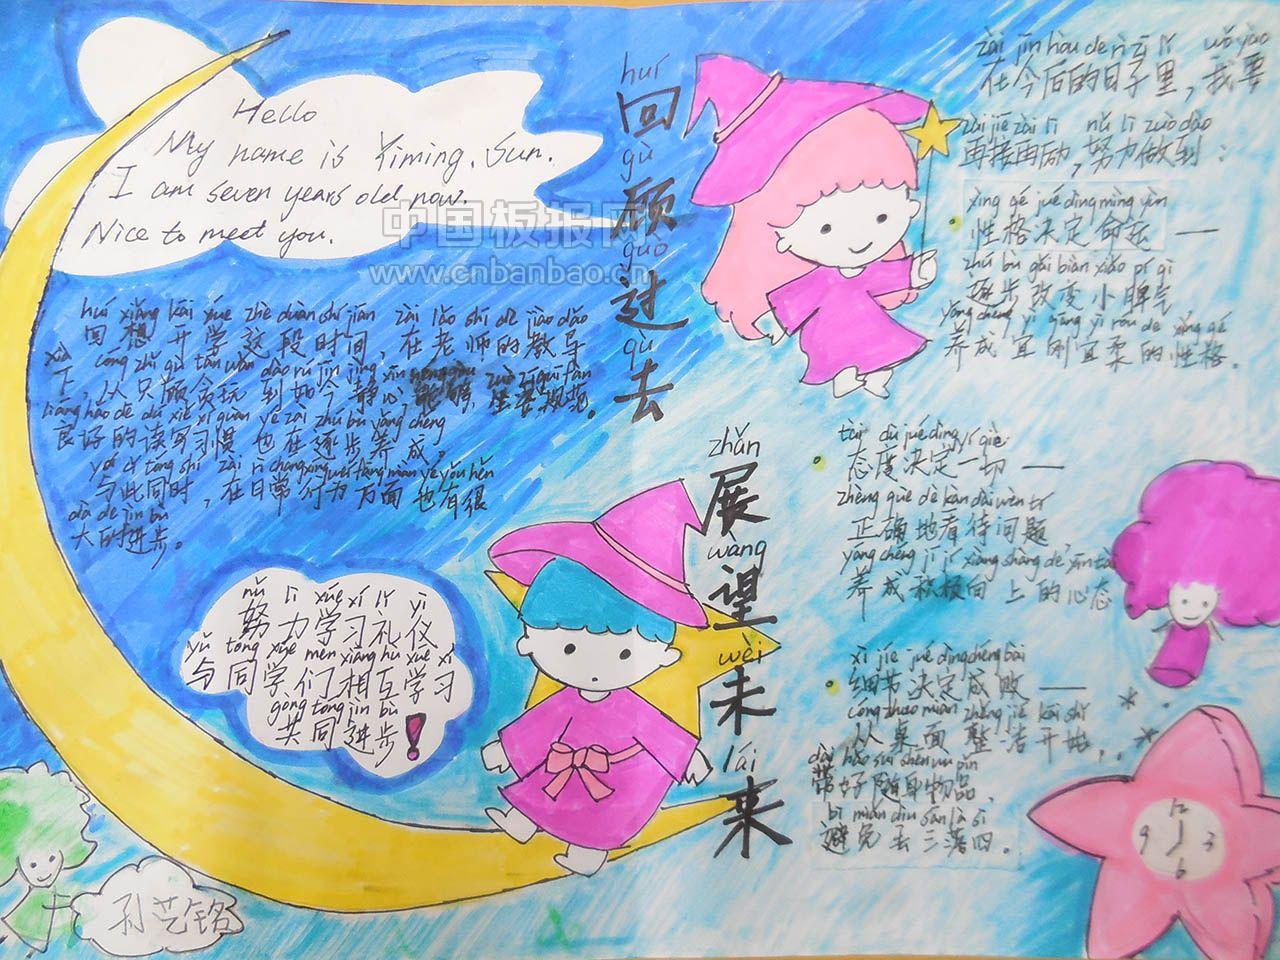 Hello
My name is Yiming. Sun.
I am seven years old now.
Nice to meet you.
中国板报网
www.cnbanbao.cn
huí
回
gù
顾
guò
过
qù
去
huí xiǎng kāi xué zhè duàn shí jiān zài lǎo shī de jiào dǎo
回想开学这段时间,在老师的教导
xià cóng zhǐ gù tān wán dào rú jīn jìng xīn
下,从只顾贪玩到如今静心能够坐姿规范。
liáng hǎo de dú xiě xí guàn yě zài zhú bù yǎng chéng
良好的读写习惯也在逐步养成。
yǔ cǐ tóng shí zài rì cháng xíng wéi fāng miàn yě yǒu hěn
与此同时,在日常行为方面也有很
dà de jìn bù
大的进步。
nǔ lì xué xí lǐ yí
努力学习礼仪
yǔ tóng xué men xiāng hù xué xí
与同学们相互学习
gòng tóng jìn bù
共同进步!
孙艺铭
zhǎn
展
wàng
望
wèi
未
lái
来
zài jīn hòu de rì zi lǐ wǒ yào
在今后的日子里,我要
zài jiē zài lì nǔ lì zuò dào
再接再励,努力做到:
xìng gé jué dìng mìng yùn
性格决定命运——
zhú bù gǎi biàn xiǎo pí qì
逐步改变小脾气
yǎng chéng yí gāng yí róu de xìng gé
养成宜刚宜柔的性格。
tài dù jué dìng yí qiè
态度决定一切——
zhèng què de kàn dài wèn tí
正确地看待问题,
yǎng chéng jī jí xiàng shàng de xīn tài
养成积极向上的心态
xì jié jué dìng chéng bài
细节决定成败——
cóng zhuō miàn zhěng jié kāi shǐ
从桌面整洁开始,
dài hǎo suí shēn wù pǐn
带好随身物品
bì miǎn diū sān là sì
避免丢三落四。
12
9 3
6